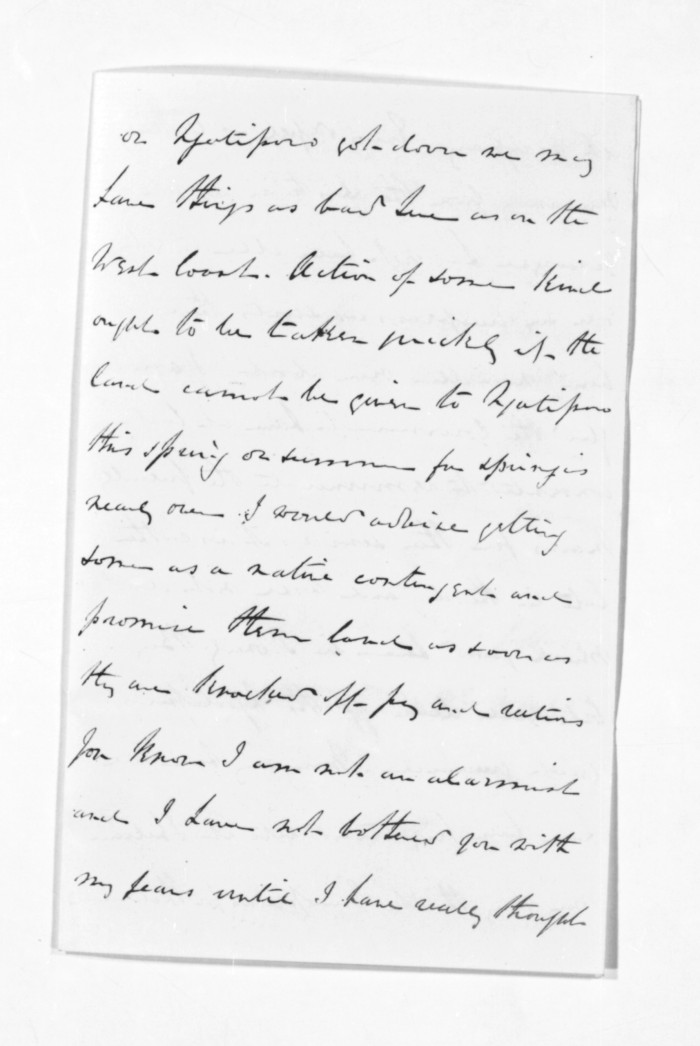 or Ngatiporo got down we may
have things as bad here as on the
West Coast. Action of some kind
ought to be taken quickly if the
land cannot be given to Ngatiporo
this spring or summer for spring is
nearly over. I would advise getting
some as a native contingent and
promise them land as soon as
they are knocked off pay and rations
You know I am not an alarmist
and I have not bothered you with
my fears until I have really thought